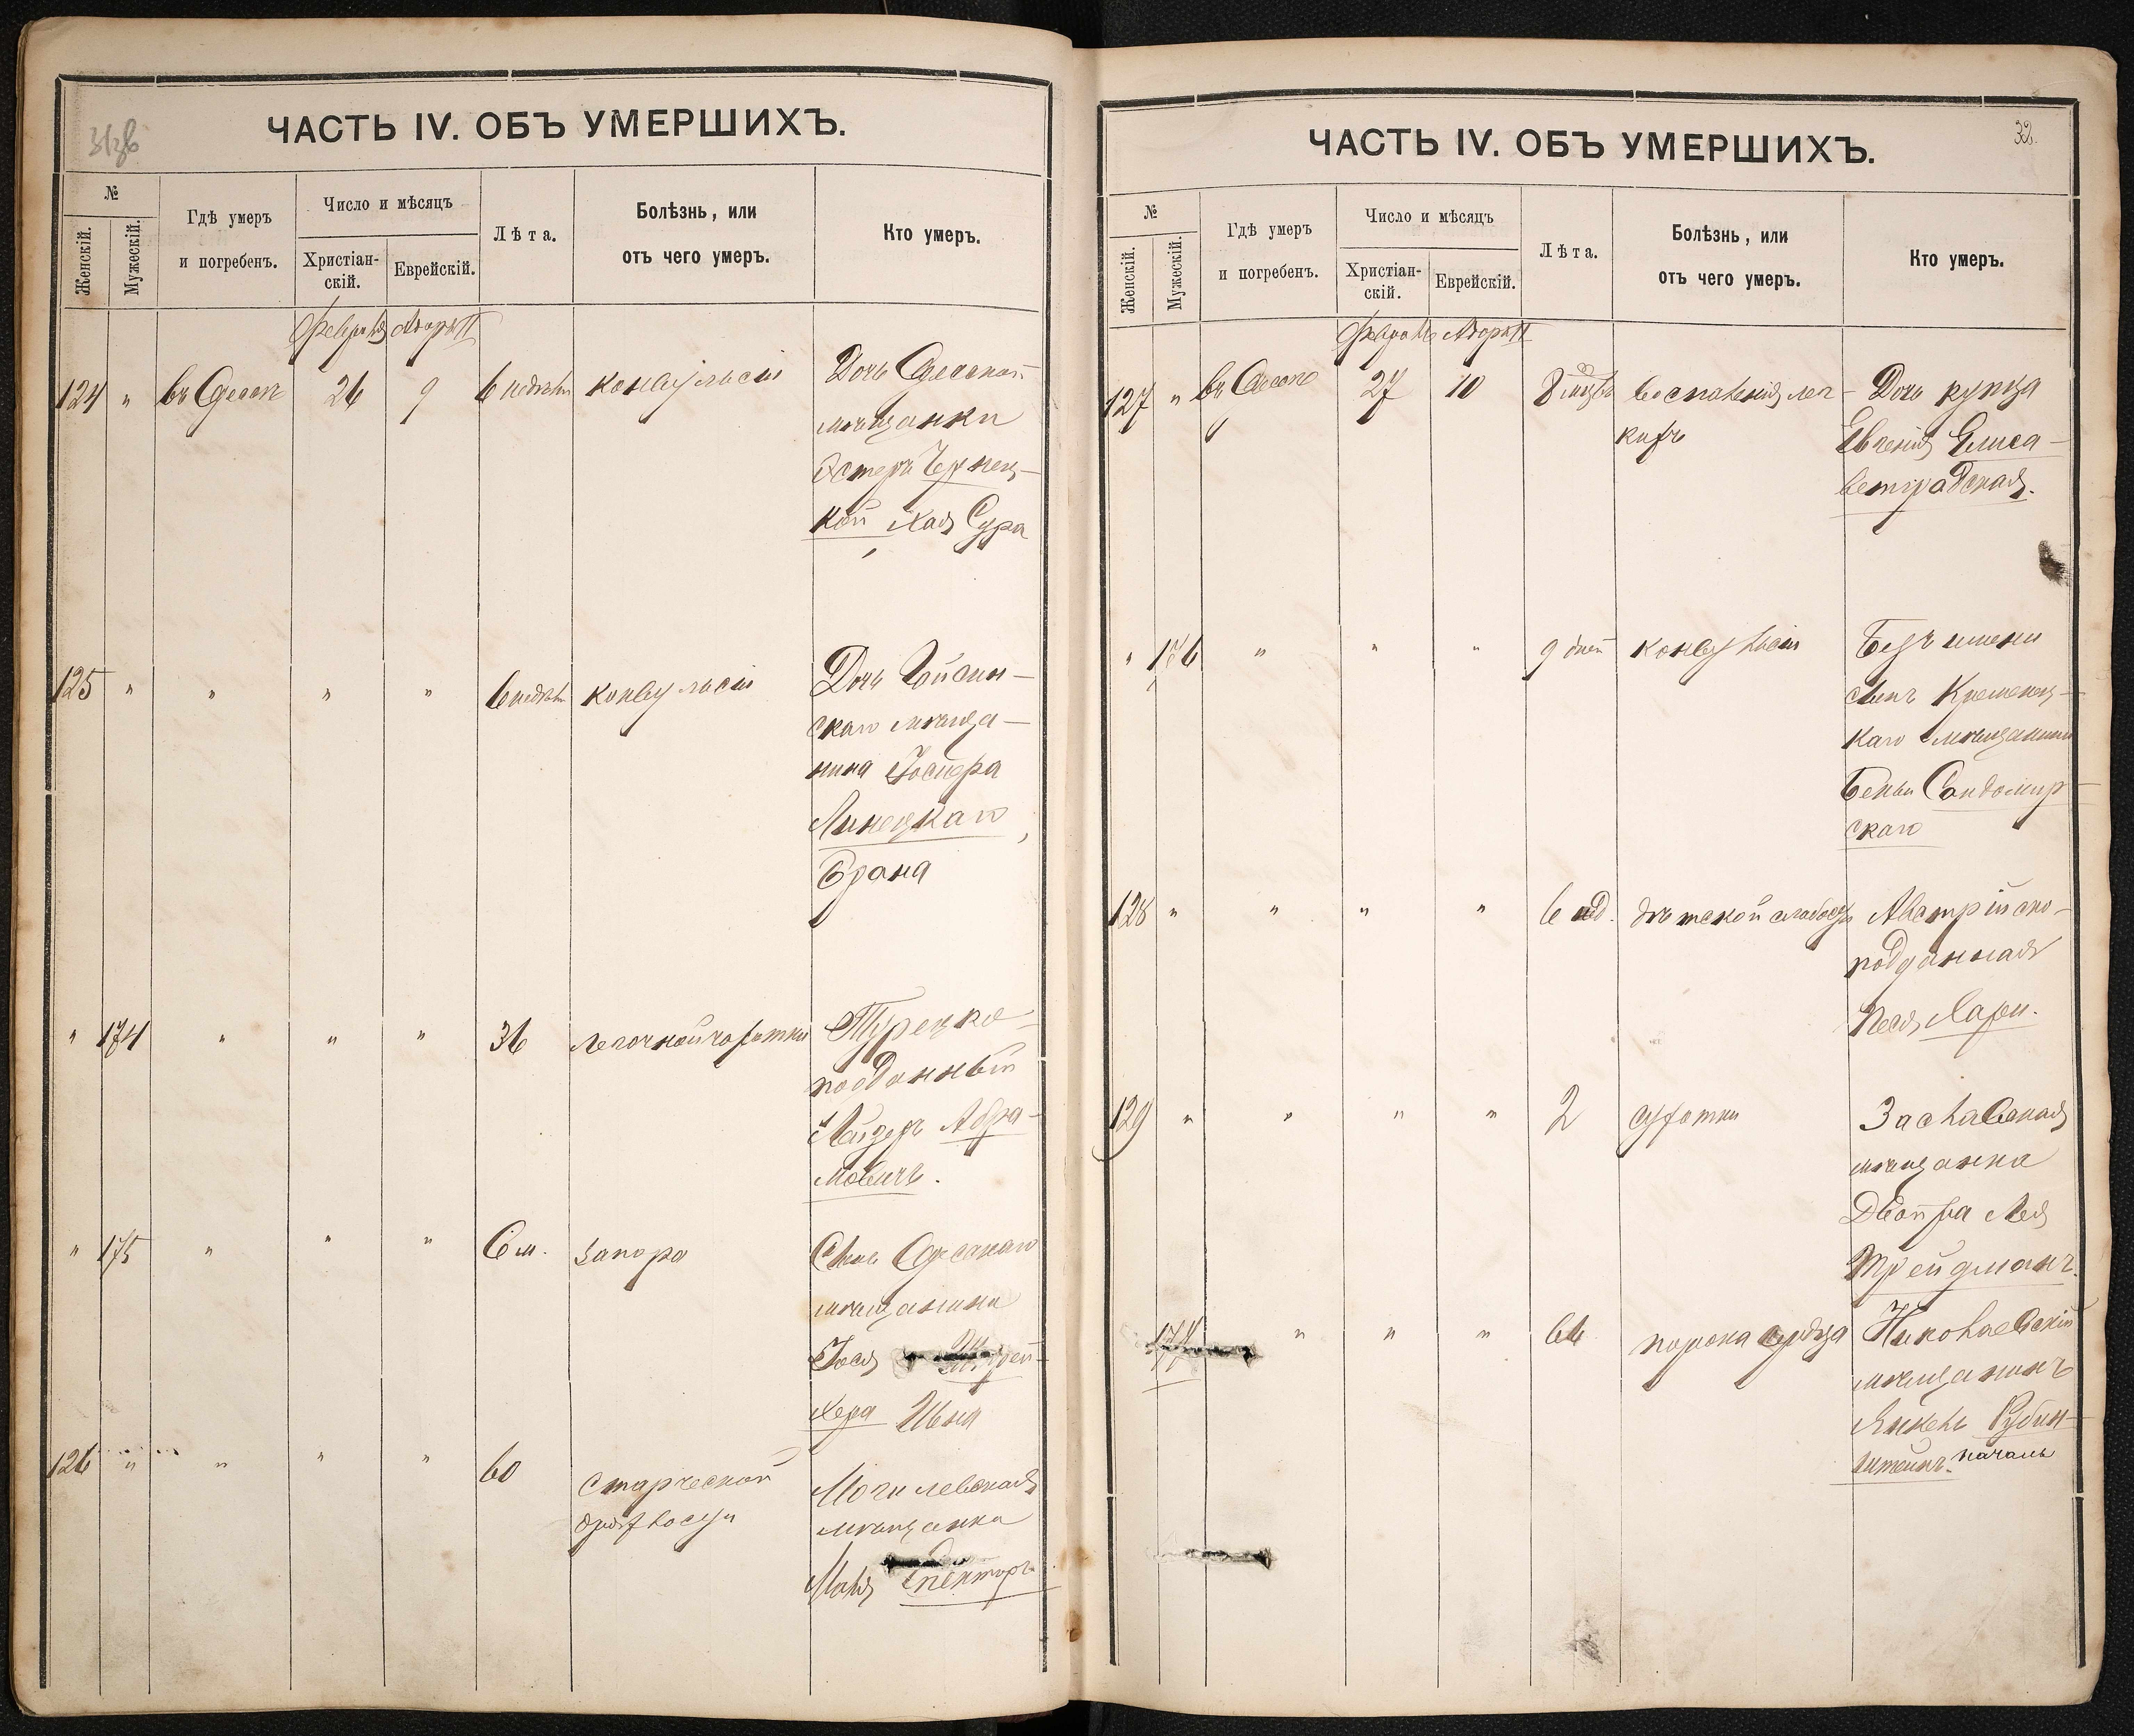 ЧАСТЬ IV. ОБЪ УМЕРШИХЪ.
№
Женскій.
Мужескій.
Гдѣ умеръ
и погребенъ.
Число и мѣсяцъ
Христіан-
скій.
Еврейскій.
Лѣта.
Болѣзнь, или
отъ чего умеръ.
Кто умеръ.
Февраля Адоръ II
124 " въ Одессѣ 26 9 6 недѣль конвульсіи Дочь Одесской
мѣщанки
Эстеръ Чернец-
кой Хая Сура
125 " " " " 6 недѣль конвульсіи Дочь Гайсин-
скаго мѣща-
нина Іосифа
Линецкаго,
Брана
" 174 " " " 36 легочной чахотки Турецко-
подданный
Лейзеръ Абра-
мовичъ.
" 175 " " " 6 м. запора Сынъ Одесскаго
мѣщанина
Іося
хера Шая
126 " " " " 60 старческой
дряхлости
Могилевская
мѣщанка
Маня Спекторъ
32.
ЧАСТЬ IV. ОБЪ УМЕРШИХЪ.
№
Женскій.
Мужескій.
Гдѣ умеръ
и погребенъ.
Число и мѣсяцъ
Христіан-
скій.
Еврейскій.
Лѣта.
Болѣзнь, или
отъ чего умеръ.
Кто умеръ.
Февраль Адоръ II
127 " въ Одессѣ 27 10 8 мѣсяц. воспаленія лег- Дочь купца
кихъ Евгенія Елиса-
ветградская.
" 176 " " " 9 дней конвульсіи Безъ имени
сынъ Кременец-
каго мѣщанина
Беньи Сандомир-
скаго
128 " " " " 6 нед. дѣтской слабости Австрійско-
подданная
Песя Хари.
129 " " " " 2 сухотки Заславская
мѣщанка
Двойра Лея
Трейдманъ.
177 " " " 66 порока сердца Николаевскій
мѣщанинъ
Янкель Рубин-
штейнъ.